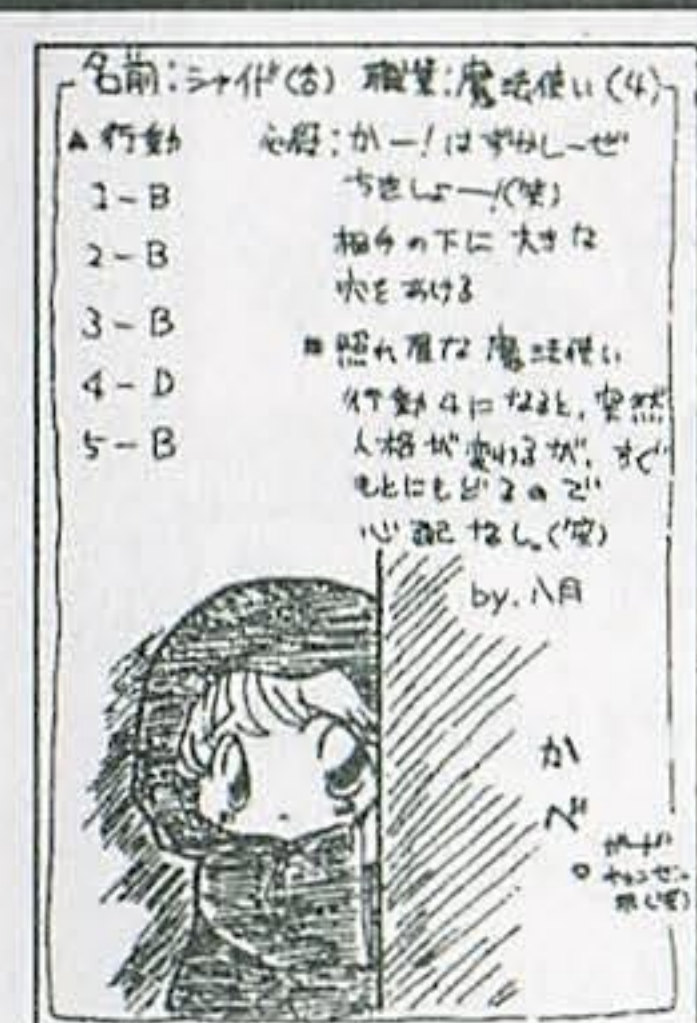 名前:シャイド(合) 職業:魔法使い(4)
▲行動
1-B
2-B
3-B
4-D
5-B
必殺:かー!はずかし〜ぜ
ちきしょー!(笑)
相手の下に大きな
穴をあける
■照れ屋な魔法使い
行動4になると、突然
人格が変わるが、すぐ
もとにもどるので
心配なし。(笑)
by.八月
かべ